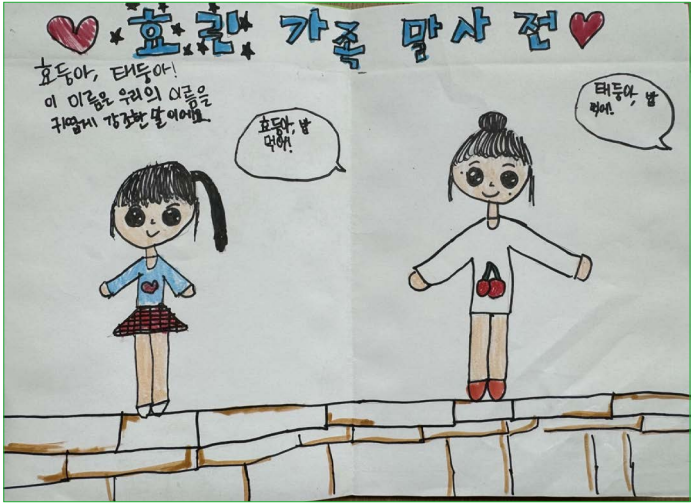 효린 가족 말사전
효둥아, 태둥아!
이 이름은 우리의 이름을
귀엽게 강조한 말이에요.
효둥아, 밥
먹어!
태둥아, 밥
먹어!